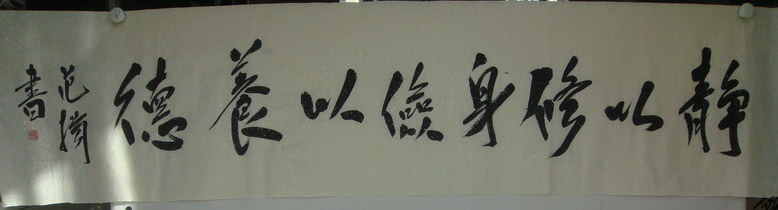 靜以修身儉以養德
范
書